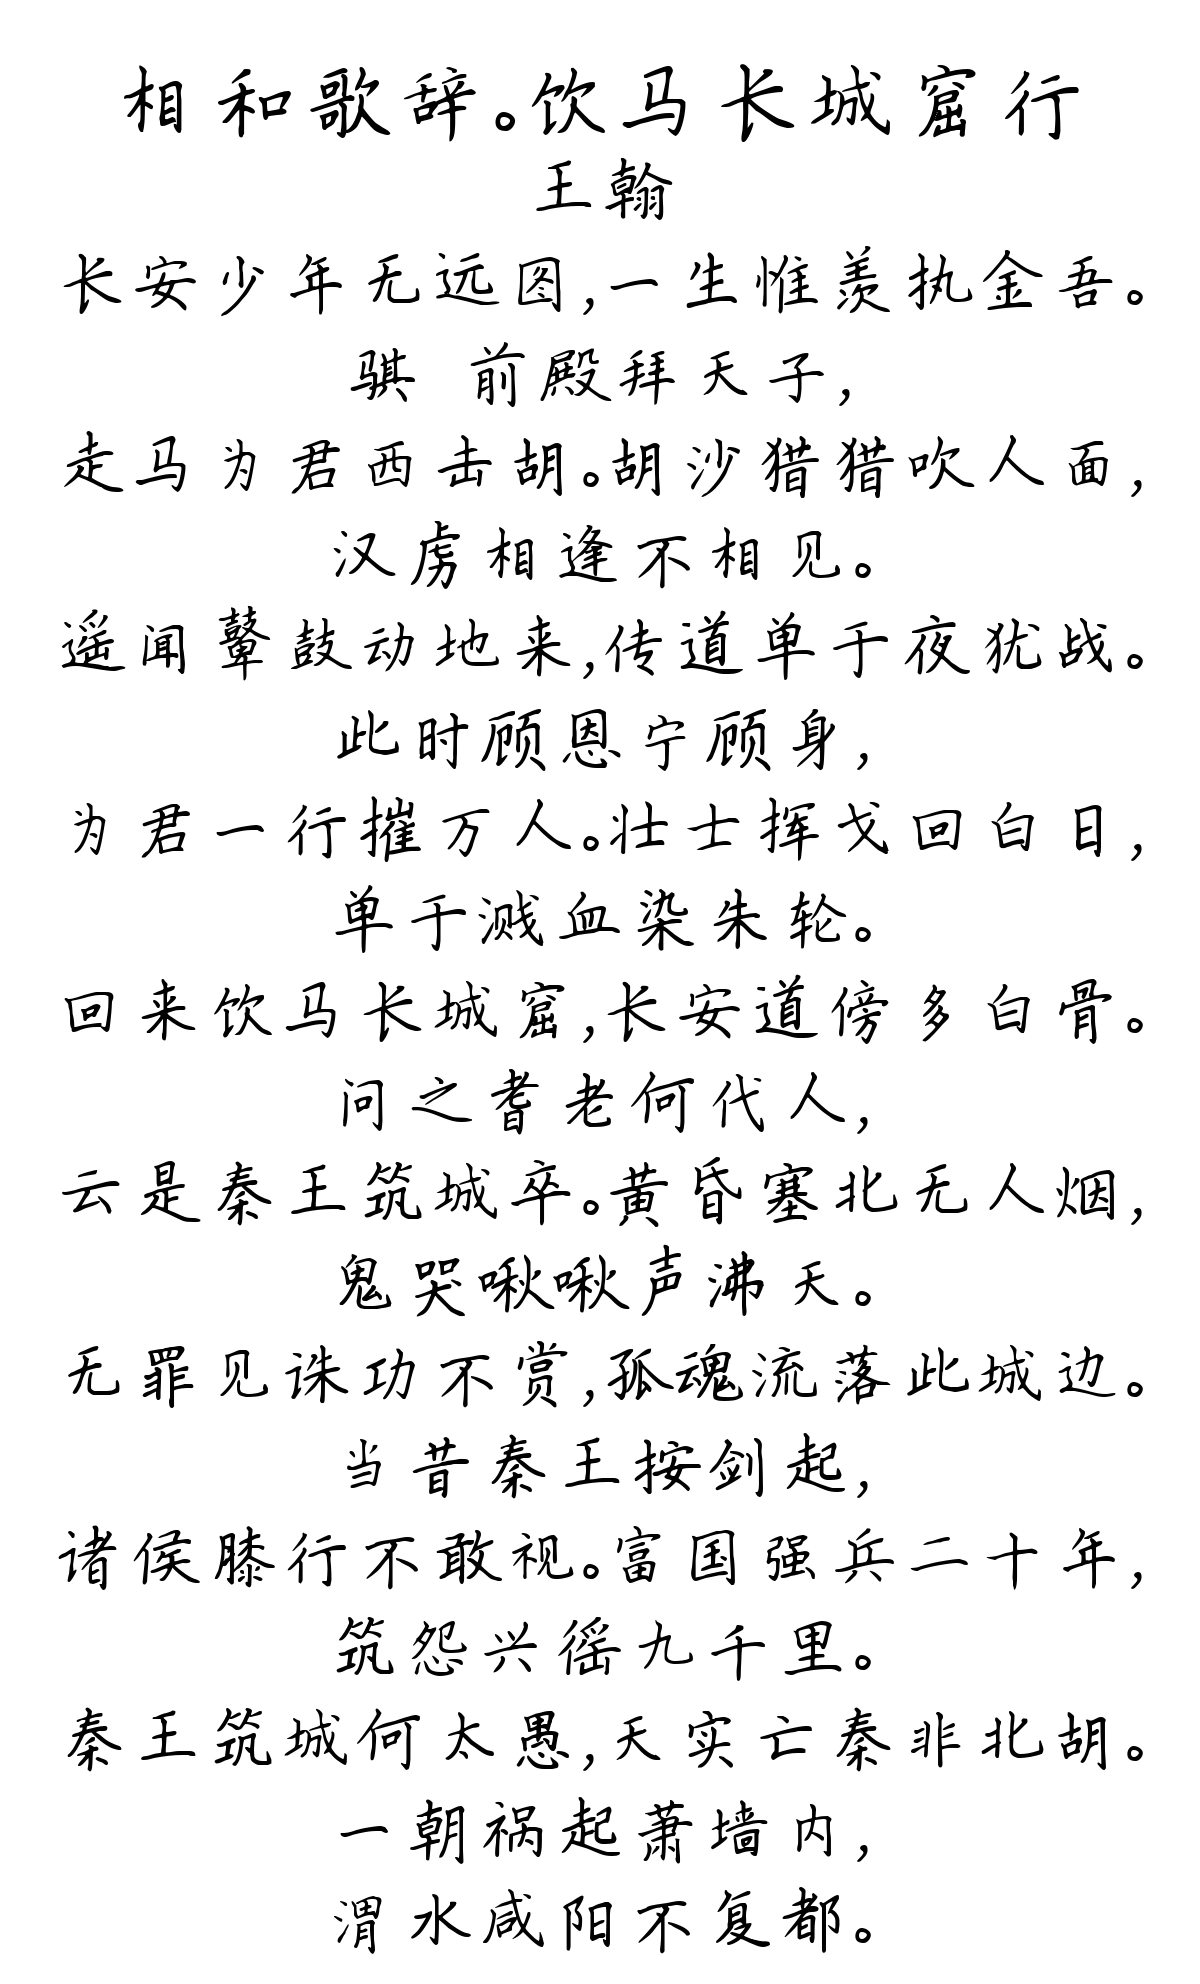 相和歌辞。饮马长城窟行
王翰
长安少年无远图,一生惟羡执金吾。
骐 前殿拜天子,
走马为君西击胡。胡沙猎猎吹人面,
汉虏相逢不相见。
遥闻鼙鼓动地来,传道单于夜犹战。
此时顾恩宁顾身,
为君一行摧万人。壮士挥戈回白日,
单于溅血染朱轮。
回来饮马长城窟,长安道傍多白骨。
问之耆老何代人,
云是秦王筑城卒。黄昏塞北无人烟,
鬼哭啾啾声沸天。
无罪见诛功不赏,孤魂流落此城边。
当昔秦王按剑起,
诸侯膝行不敢视。富国强兵二十年,
筑怨兴徭九千里。
秦王筑城何太愚,天实亡秦非北胡。
一朝祸起萧墙内,
渭水咸阳不复都。